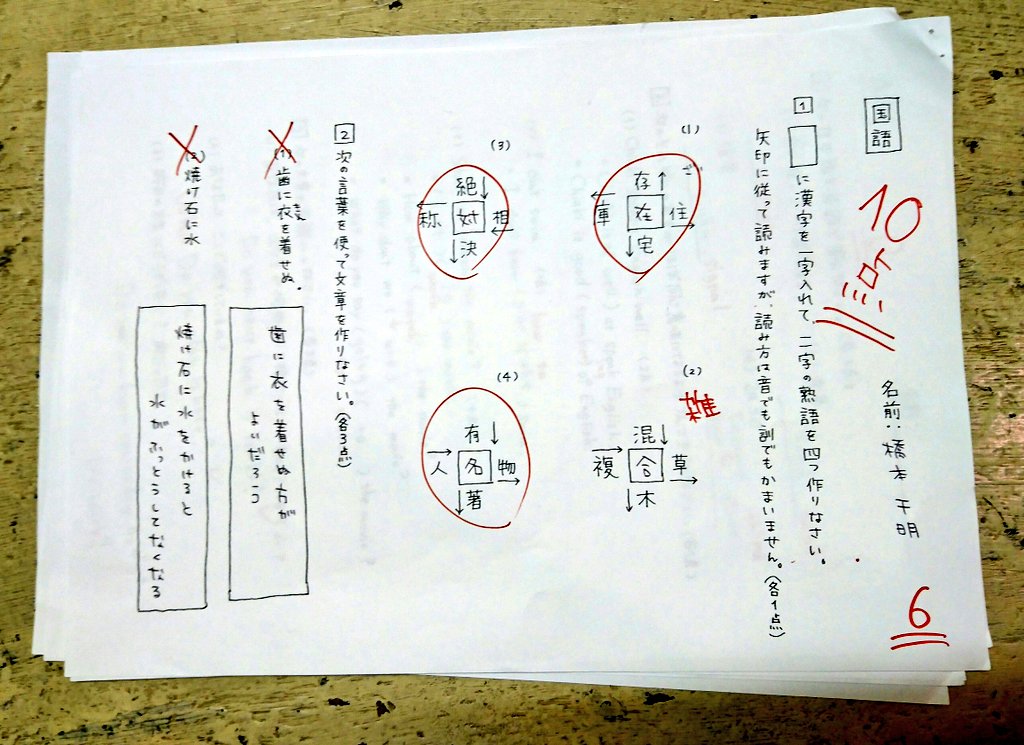 国語
10点
名前:橋本千明
6
1 □に漢字を一字入れて、二字の熟語を四つ作りなさい。
矢印に従って読みますが、読み方は音でも訓でもかまいません。(各1点)
(1)
存↑
←庫 在 住→
↓宅
(2)
雑
混↓
→複 合 草→
↓木
(3)
絶↓
←称 妙 相←
↓決
(4)
有↓
→人 名 物→
↓著
2 次の言葉を使って文章を作りなさい。(各3点)
(1) 歯に衣を着せぬ。
歯に衣を着せぬ方が
よいだろう
(2) 焼け石に水
焼け石に水をかけると
水がふっとうしてなくなる